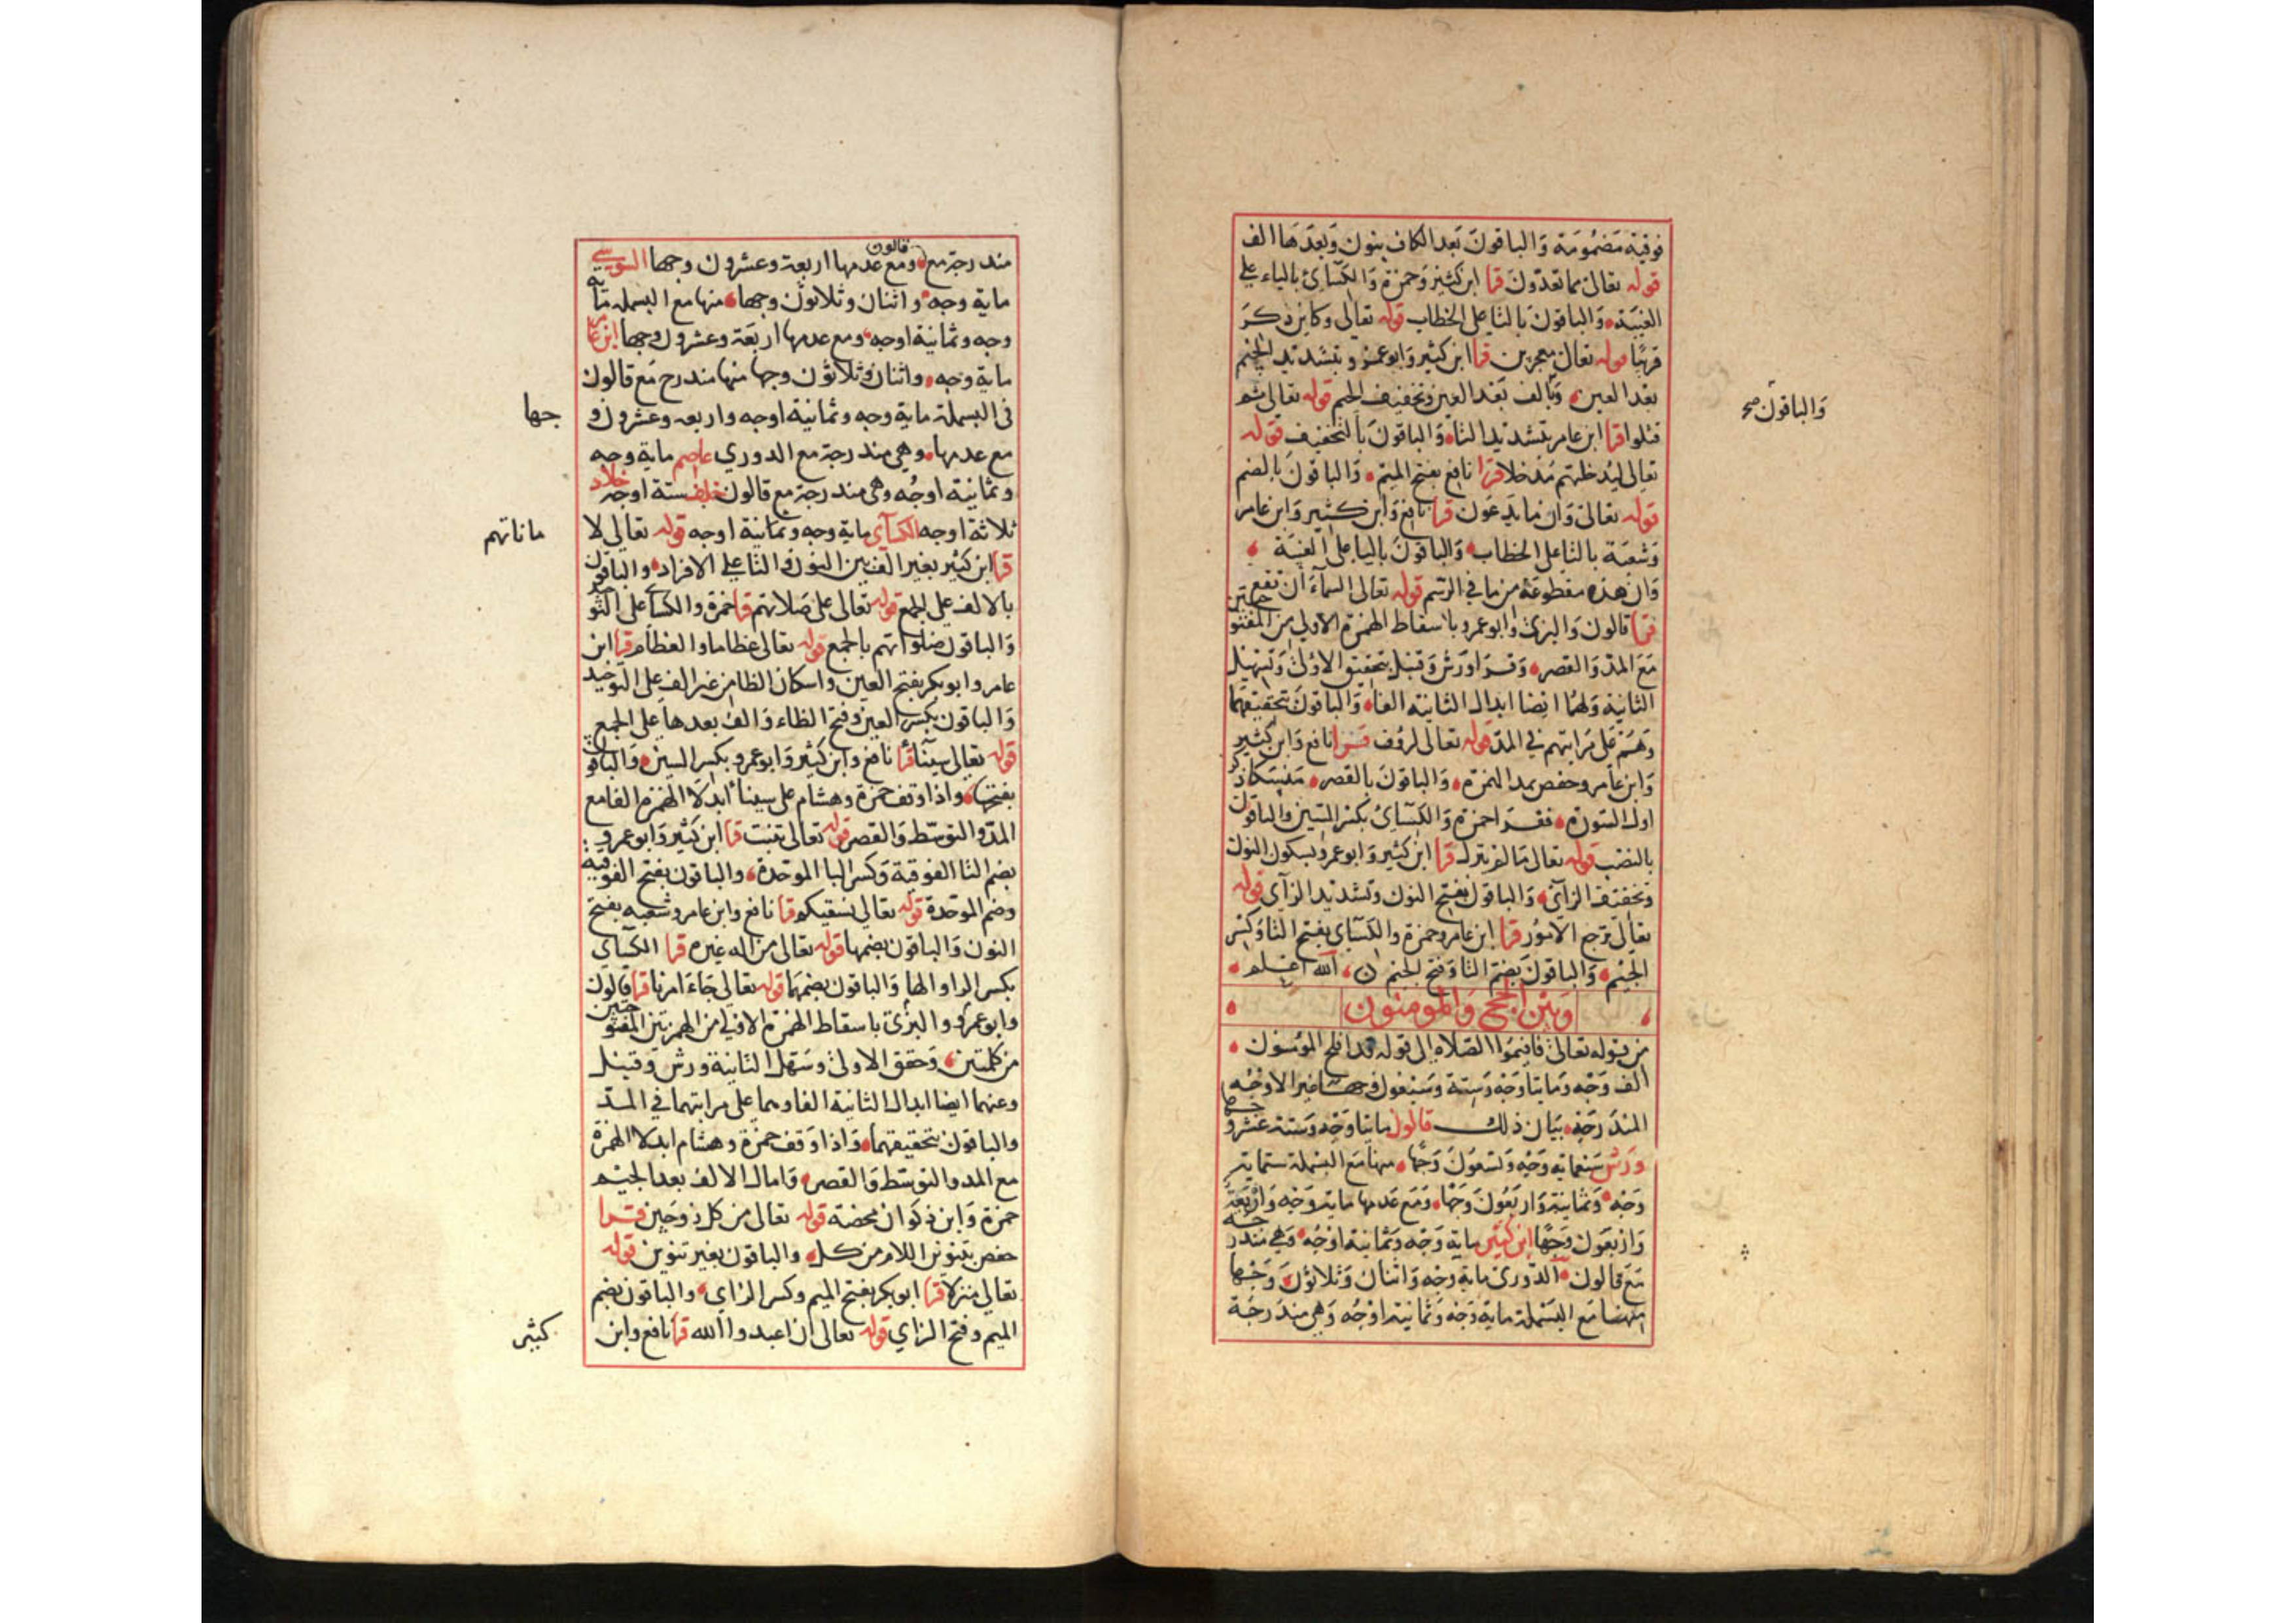 فوقية مَضمُومَة وَالباقونَ بَعد الكاف بنون وَبعدَها الف
قوله تعالى مما تعدّونَ قرا ابن كثير وَحمزة وَالكسَآئ بالياء على
الغيبَة وَالباقونَ بالتا على الخطاب قوله تعالى وكاين ذكرَ
قريبًا قوله تعالى معجزين قرا ابن كثير وَابوعمرو بتشديد الجيم
بعد العين وَبالف بَعد العين وتخفيف الجيم قوله تعالى ثم
قتلوا قرا ابن عامر بتشديد التا وَالباقونَ بالتخفيف قوله
تعالى ليدخلنهم مَدخلا قرا نافع بفتح الميم وَالباقونَ بالضم
قوله تعالى وَان ما يدعَون قرا نافع وَابن كثير وَابن عامر
وَشعبَة بالتا على الخطاب وَالباقونَ باليا على الغيبَة
وَان هذه مقطوعَة من ما في الرسم قوله تعالى السمآء ان تقع
قرا قالون وَالبزى وابوعمرو باسقاط الهمزة الاولى من المفتوحتين
مَعَ المدّ وَالقصر وَقرا وَرش وَقنبل بتحقيق الاولى وَتسهيل
الثانية وَلهُمَا ايضا ابدال الثانية الفا وَالباقونَ بتحقيقهما
وَهمْ على مَراتبهم في المدّ قوله تعالى لرؤف قرا نافع وَابن كثير
وَابن عامر وحفص بمد الهمزة وَالباقونَ بالقصر مَنسَكا ذكر
اول السّورة فقرا حمزة وَالكسَآئ بكسر السّين وَالباقون
بالنصَب قوله تعالى مَا لم ينزل قرا ابن كثير وَابوعمرو بسكون النون
وتخفيف الزاى وَالباقون بفتح النون وتشديد الزآى قوله
تعالى ترجع الامُور قرا ابن عامر وحمزة والكسآى بفتح التا وَكسْر
الجيم وَالباقونَ بضم التا وَفتح الجيم الله اعلم
وَبيْن الحج وَالمومنون
من قوله تعالى فاقيموا الصلاة الى قوله قد افلح المومنون
الف وَجْه وَمايتا وَجْه وَستة وَسَبعون وجها غير الاوْجُه
المندَرجَة بيَان ذلك قالون مايتا وَجْه وَستة عشر وجها
وَرش سَبعماية وَجْه وَتسعُونَ وَجهًا منها مَعَ البسْملة ستماية
وَجْه وَثمانية وَاربَعُونَ وَجْها وَمَع عَدمها ماية وَجْه وَارْبَعَة
وَاربعَون وَجهًا ابن كثير ماية وَجْه وَثمانية اوْجُه وَهى مندرجة
مَعَ قالون الدّورى ماية وجْه وَاثنان وَثلاثونَ وَجْها
منها مَع البسْملة ماية وَجْه وَثمانية اوْجُه وَهى مندَرجَة
وَالباقون صح
مندرجة مع قالون ومع عدمها اربعة وعشرون وجها السوسي
ماية وجه واثنان وثلاثون وجها منها مع البسملة ماية
وجه وثمانية اوجه ومع عدمها اربعَة وعشرون وجها ابن عامر
ماية وجه واثنان وثلاثون وجها منها مندرج مَع قالون
فى البسملة ماية وجه وثمانية اوجه واربعه وعشرون و
جها
مع عدمها وهي مندرجة مع الدوري عاصم ماية وجه
وثمانية اوجُه وهى مندرجة مع قالون خلف ستة اوجه خلاد
ثلاثة اوجه الكسآى ماية وجه وثمانية اوجه قوله تعالى لا
ماناتهم
قرا ابن كثير بغير الف بين النون و التا على الافراد والباقون
بالالف على الجمع قوله تعالى على صَلاتهم قرا حمزة والكسآى على التوحيد
وَالباقون صلواتهم بالجمع قوله تعالى عظاما والعظام قرا ابن
عامر وابوبكر بفتح العين واسكان الظا من غير الف على التوحيد
وَالباقون بكسر العين وفتح الظاء وَالف بعدها على الجمع
قوله تعالى سينآ قرا نافع وابن كثير وَابوعمرو بكسر السين وَالباقون
بفتحها واذا وقف حمزة وهشام على سينآ ابدلا الهمزة الفا مع
المدّ والتوسّط وَالقصر قوله تعالى تنبت قرا ابن كثير وَابوعمرو
بضم التا الفوقية وَكسر البا الموَحدة والباقون بفتح الفوقية
وضم الموَحدة قوله تعالى نسقيكم قرا نافع وابن عامر وشعبه بفتح
النون وَالباقون بضمها قوله تعالى من اله غيره قرا الكسَآى
بكسر الرا والها وَالباقون بضمهَا قوله تعالى جَاءَ امرنا قرا قالون
وابوعمرو والبزّى باسقاط الهمزة الاولى من الهمزتين المفتوحتين
من كلمتين وَحقق الاولى وسَهل الثانية ورش وَقنبل
وعنهما ايضا ابدال الثانية الفا وهما على مراتبهما في المدّ
والباقون بتحقيقهما وَاذا وَقف حمزة وهشام ابدلا الهمزة
مع المد والتوسّط وَالقصر وَامال الالف بعد الجيم
حمزة وَابن ذكوَان محضة قوله تعالى من كل زوجَين قرا
حفص بتنوين اللام من كل والباقون بغير تنوين قوله
تعالى منزلا قرا ابوبكر بفتح الميم وكسر الزاى والباقون بضم
الميم وفتح الزاي قوله تعالى ان اعبدوا الله قرا نافع وابن
كثير